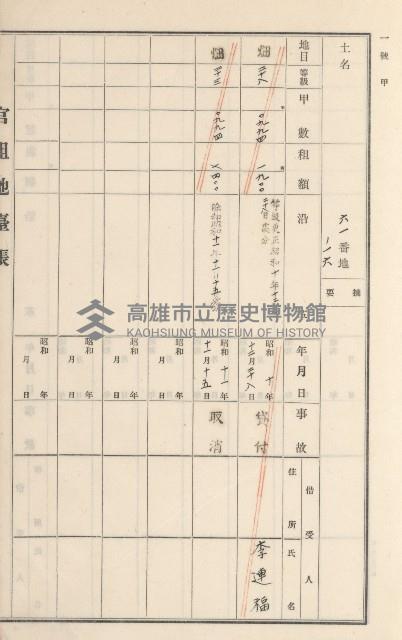 一號甲
土名
六一番地
ノ一六
摘要
地目
等級
甲數
租額
沿
年月日
事故
借受人
住所
氏名
畑
二十八
〇九九四
一九〇〇
等級更正昭和十年十二月
二十八日貸付
昭和十年
十二月二十八日
貸付
李連福
畑
二十三
〇九九四
昭和十一年
十一月十五日
取消
昭和 年
月 日
昭和 年
月 日
昭和 年
月 日
昭和 年
月 日
官租地臺帳
高雄市立歷史博物館
KAOHSIUNG MUSEUM OF HISTORY